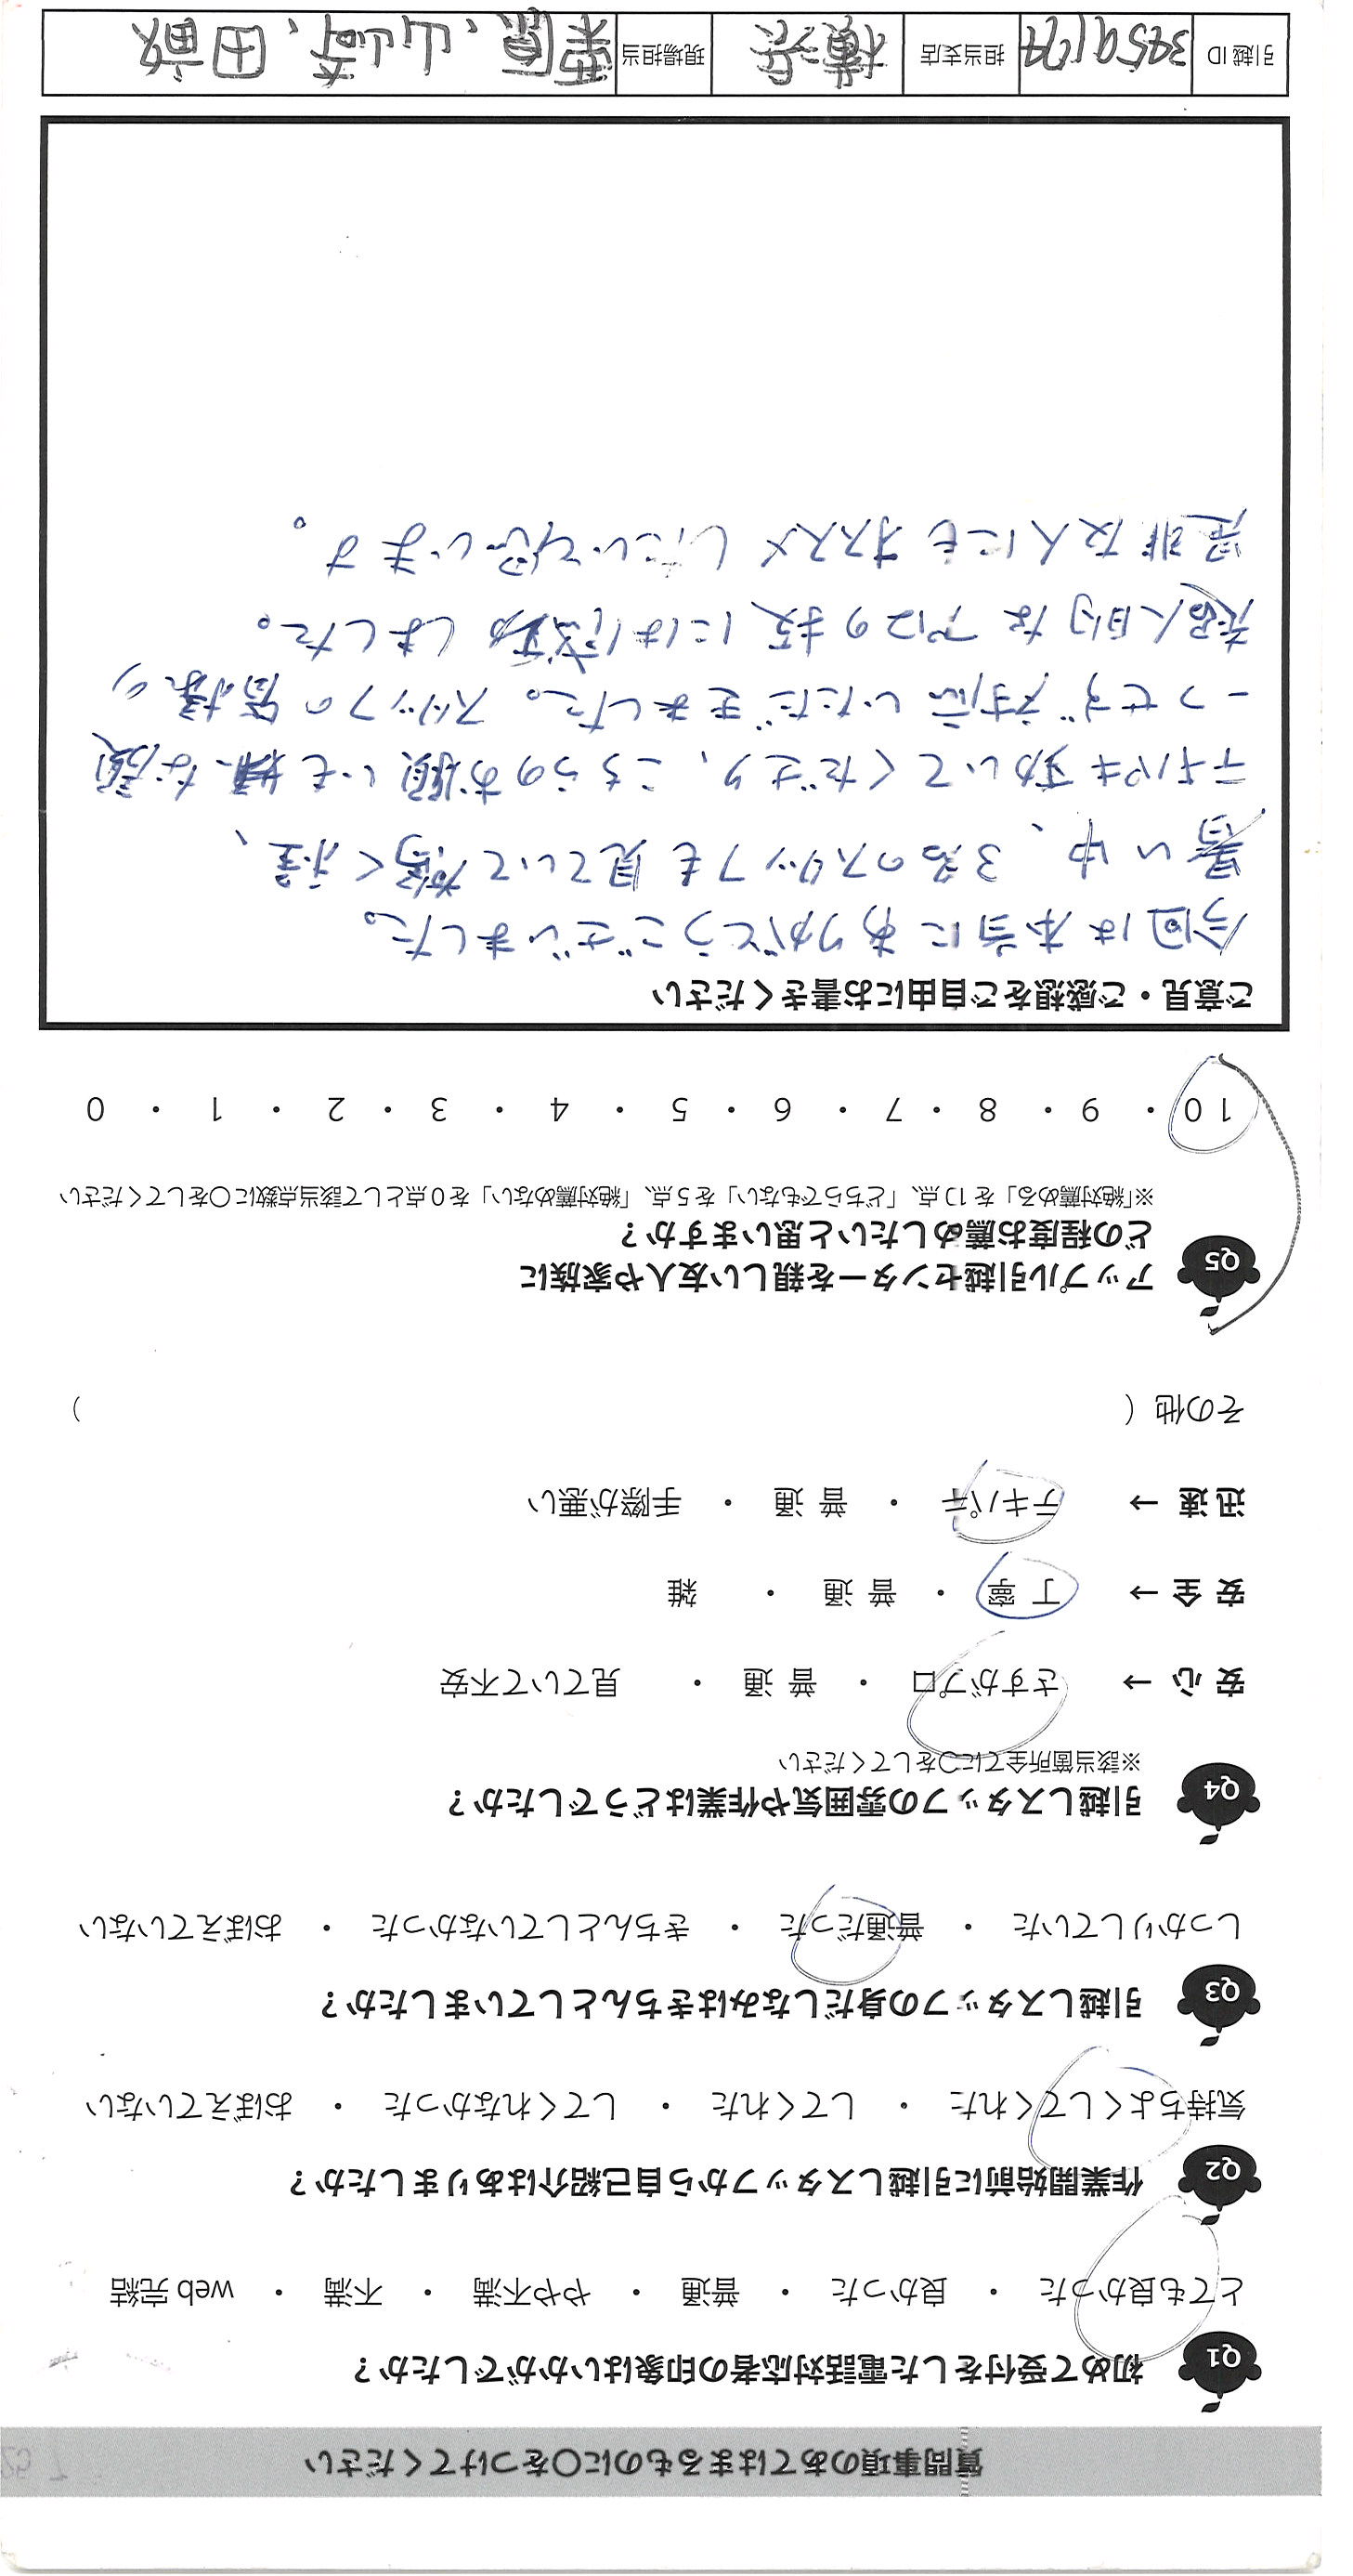 質問事項のあてはまるものに○をつけてください
Q1 初めて受付をした電話対応者の印象はいかがでしたか？
とても良かった ・ 良かった ・ 普通 ・ やや不満 ・ 不満 ・ web 完結
Q2 作業開始前に引越しスタッフから自己紹介はありましたか？
気持ちよくしてくれた ・ してくれた ・ してくれなかった ・ おぼえていない
Q3 引越しスタッフの身だしなみはきちんとしていましたか？
しっかりしていた ・ 普通だった ・ きちんとしていなかった ・ おぼえていない
Q4 引越しスタッフの雰囲気や作業はどうでしたか？
※該当箇所全てに○をしてください
安心 → さすがプロ ・ 普通 ・ 見ていて不安
安全 → 丁寧 ・ 普通 ・ 雑
迅速 → テキパキ ・ 普通 ・ 手際が悪い
その他（ ）
Q5 アップル引越センターを親しい友人や家族に
どの程度お薦めしたいと思いますか？
※「絶対薦める」を 10 点、「どちらでもない」を 5 点、「絶対薦めない」を 0 点として該当点数に○をしてください
10 ・ 9 ・ 8 ・ 7 ・ 6 ・ 5 ・ 4 ・ 3 ・ 2 ・ 1 ・ 0
ご意見・ご感想をご自由にお書きください
今回は本当にありがとうございました。
暑い中、3名のスタッフも見ていて驚く程、
テキパキ動いてくださり、こちらのお願いも嫌な顔
一つせず対応いただきました。スタッフの皆様の
超人的なプロの技には感動しました。
是非友人にもオススメしたいと思います。
引越 ID 担当支店 横浜 現場担当 栗原、山崎、田畝